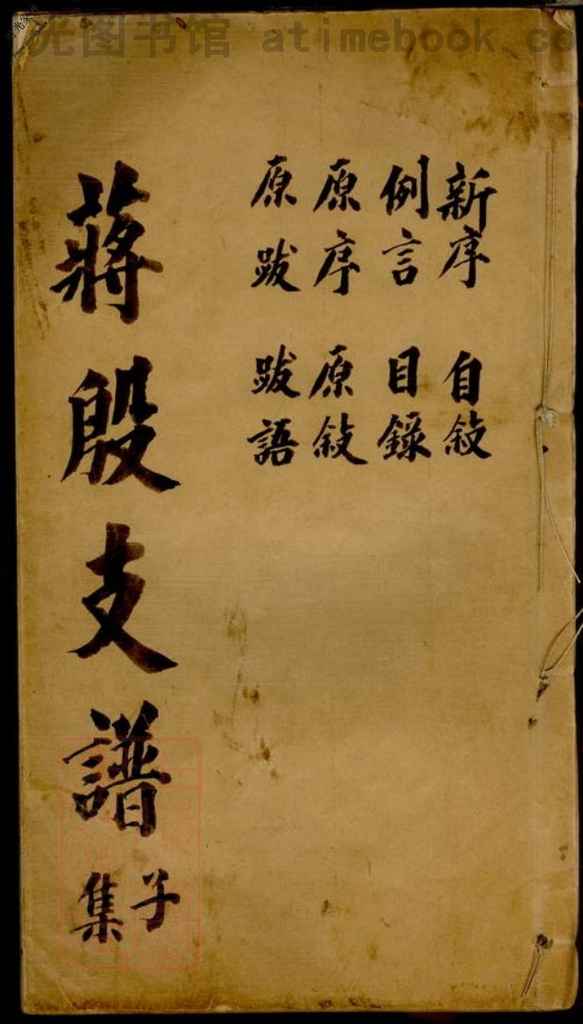 光图书馆 atimebook co
新序 自敘
例言 目錄
原序 原敘
原跋 跋語
蔣殷支譜
子集